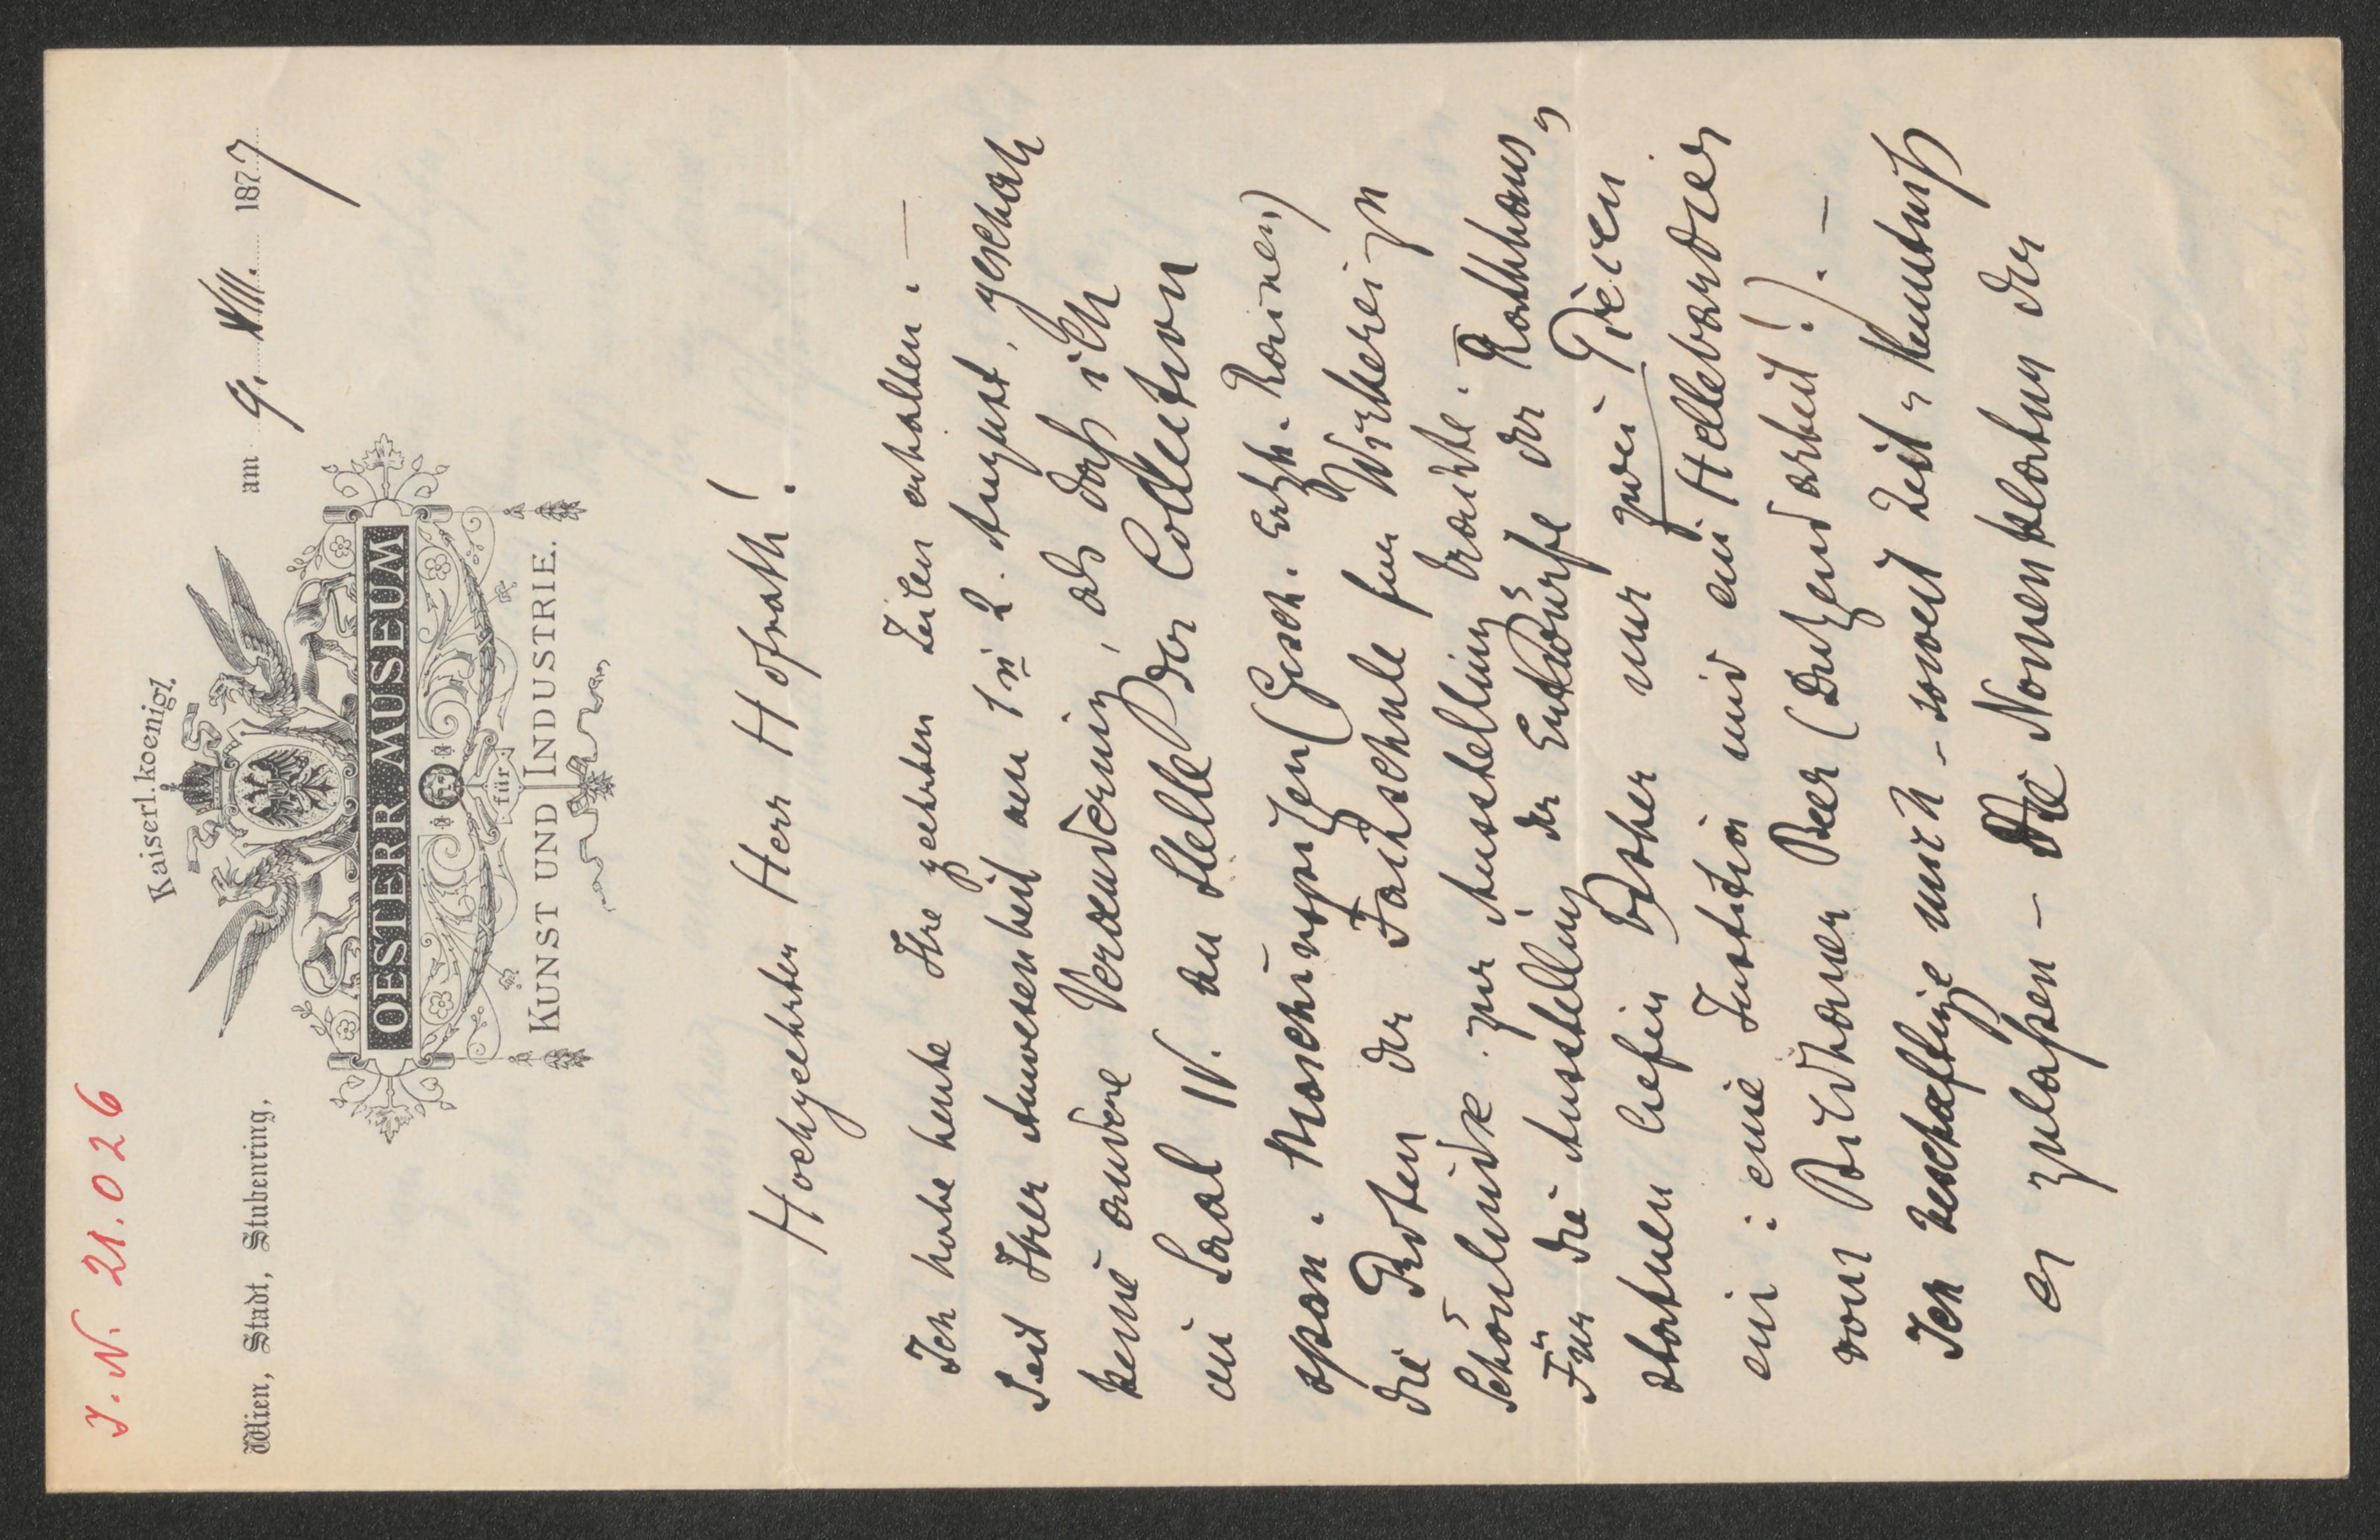 J. N. 21.026
Kaiserl. koenigl.
Wien, Stadt, Stubenring,
am 9. VIII. 1877
OESTERR. MUSEUM
für
KUNST UND INDUSTRIE.
Hochgeehrter Herr Hofrath!
Ich habe heute Ihre geehrten Zeilen erhalten. —
Seit Ihrer Anwesenheit am 1 n 2. August, geschah
keine andere Veraenderung, als daß ich
im Saal IV. an Stelle der Collection
span. Maschinspitzen (Gesch. Erzh. Rainer)
die Proben der Fachschule für Wirkerei in
Schönlinde zur Ausstellung brachte.
Für die Ausstellung der Entwürfe der Rathhaus,,
statuen liefen bisher nur zwei Piecen
ein: eine Justitia und ein Hellebardier
vom Bildhauer Beer (Dutzendarbeit!). —
Ich beschaeftige mich – soweit Zeit u Kenntniß
es zulaßen – die Nomenklatur der